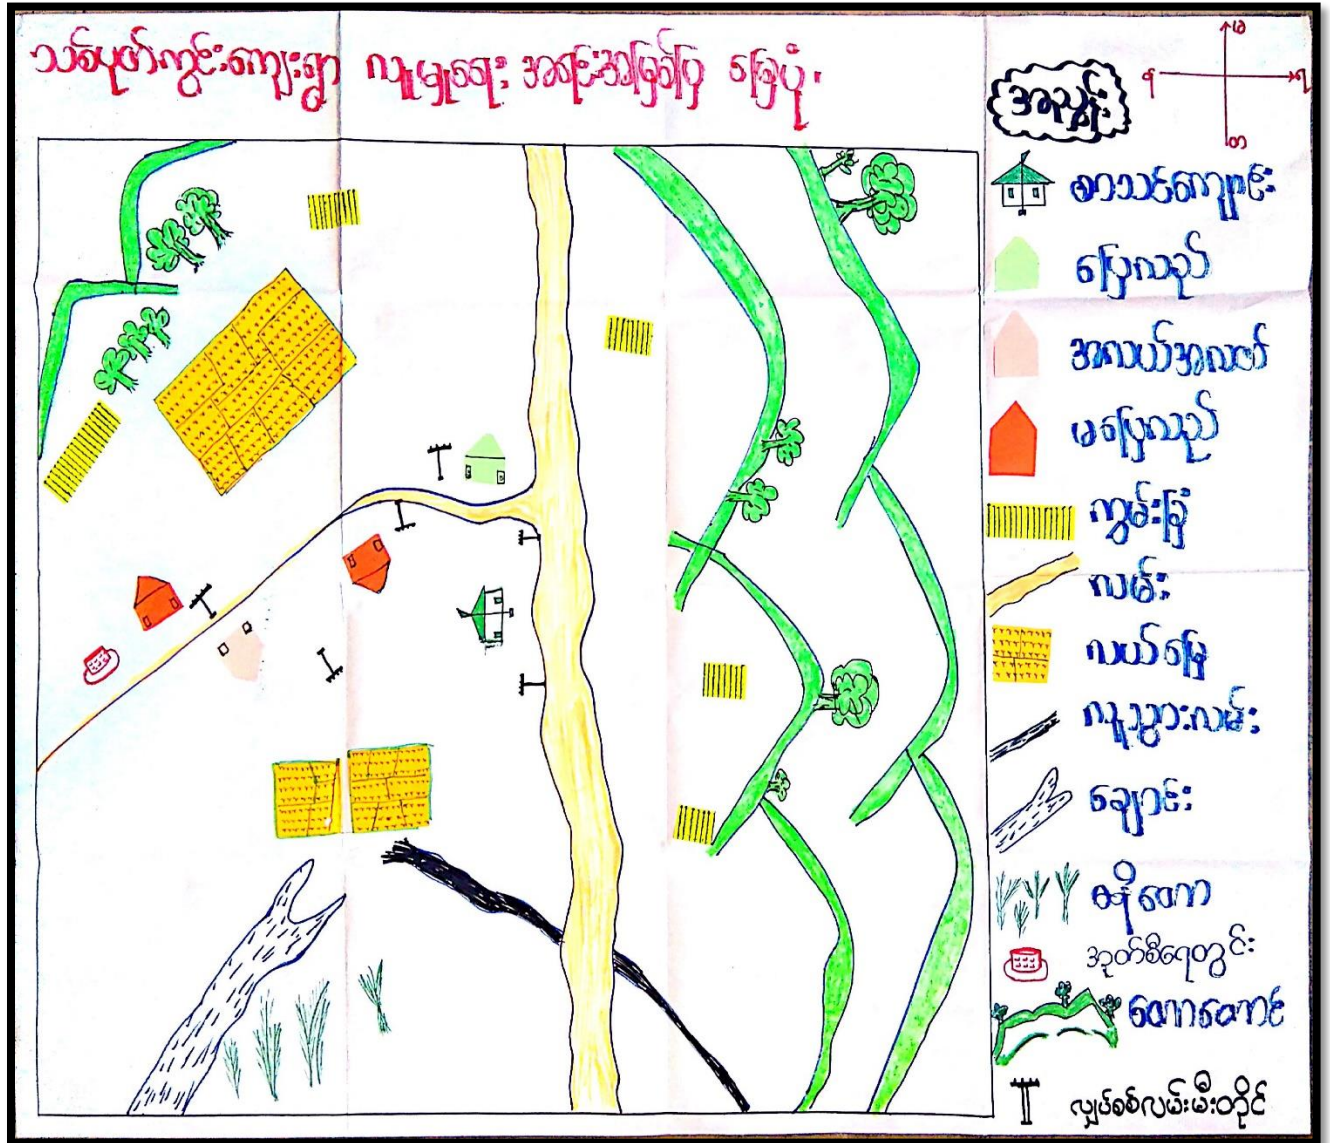 သစ်ပုတ်ကွင်းကျေးရွာ လူမှုရေး အရင်းအမြစ်ပြ မြေပုံ။
အညွှန်း
စာသင်ကျောင်း
ပြေလည်
အလယ်အလတ်
မပြေလည်
ကွမ်းခြံ
လမ်း
လယ်မြေ
လူသွားလမ်း
ချောင်း
ဓနိတော
အုတ်စီရေတွင်း
တောတောင်
လျှပ်စစ်လမ်းမီးတိုင်